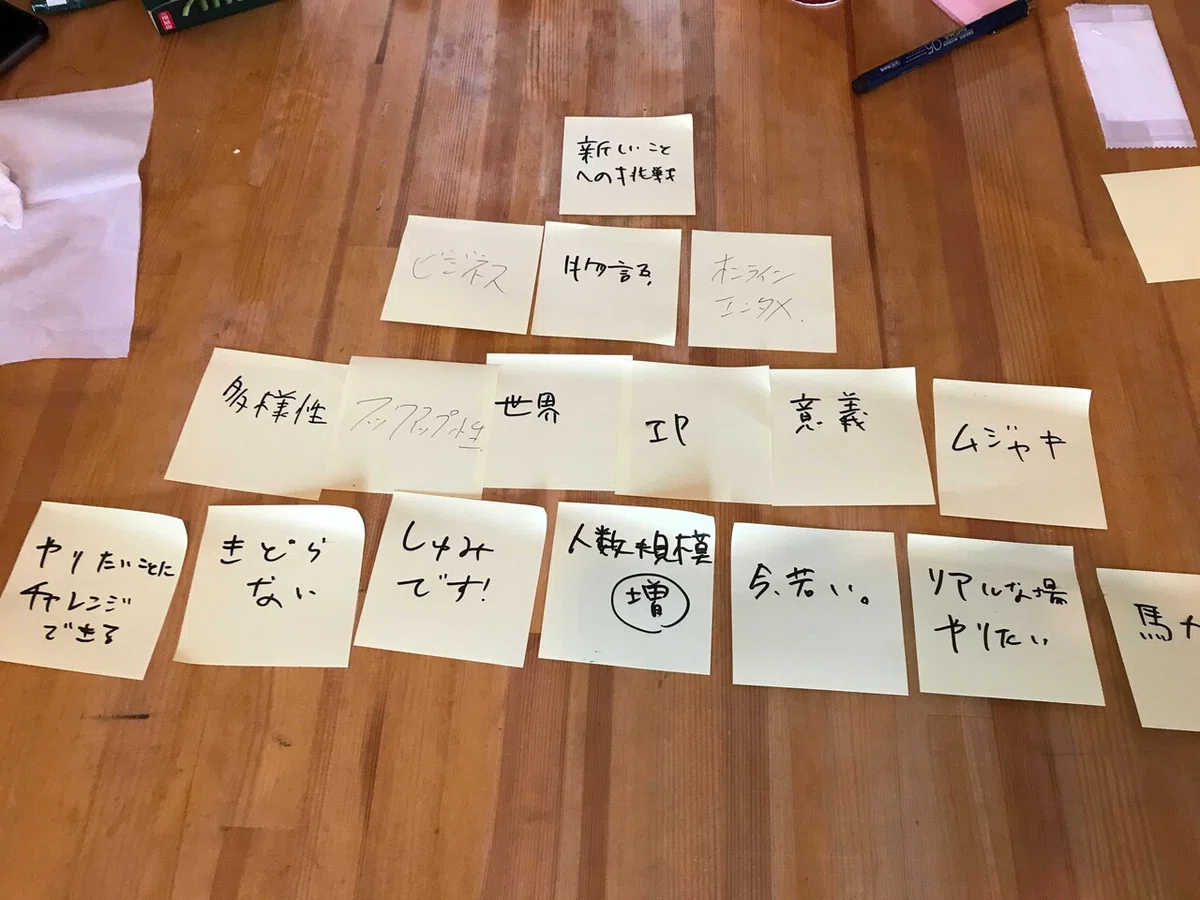 新しいこと
への挑戦
ビジネス
物語
オンライン
エンタメ.
多様性
フックアップ性
世界
IP
意義
ムジャキ
やりたいことに
チャレンジ
できる
きどら
ない
しゅみ
です!
人数規模
増
今、若い。
リアルな場
やりたい
馬
05